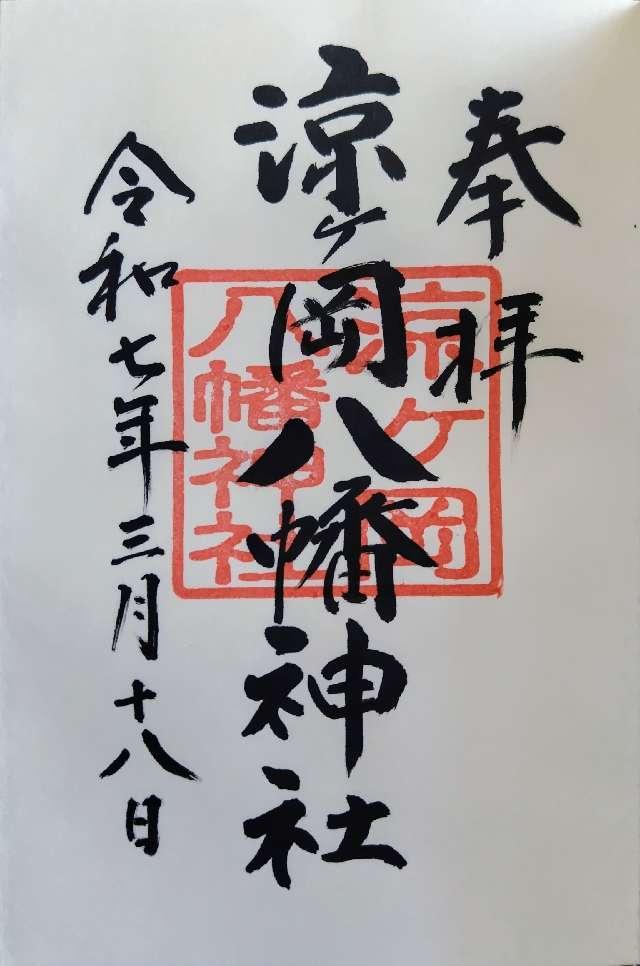 奉拝
涼ヶ岡八幡神社
涼ケ岡
八幡神社
令和七年三月十八日